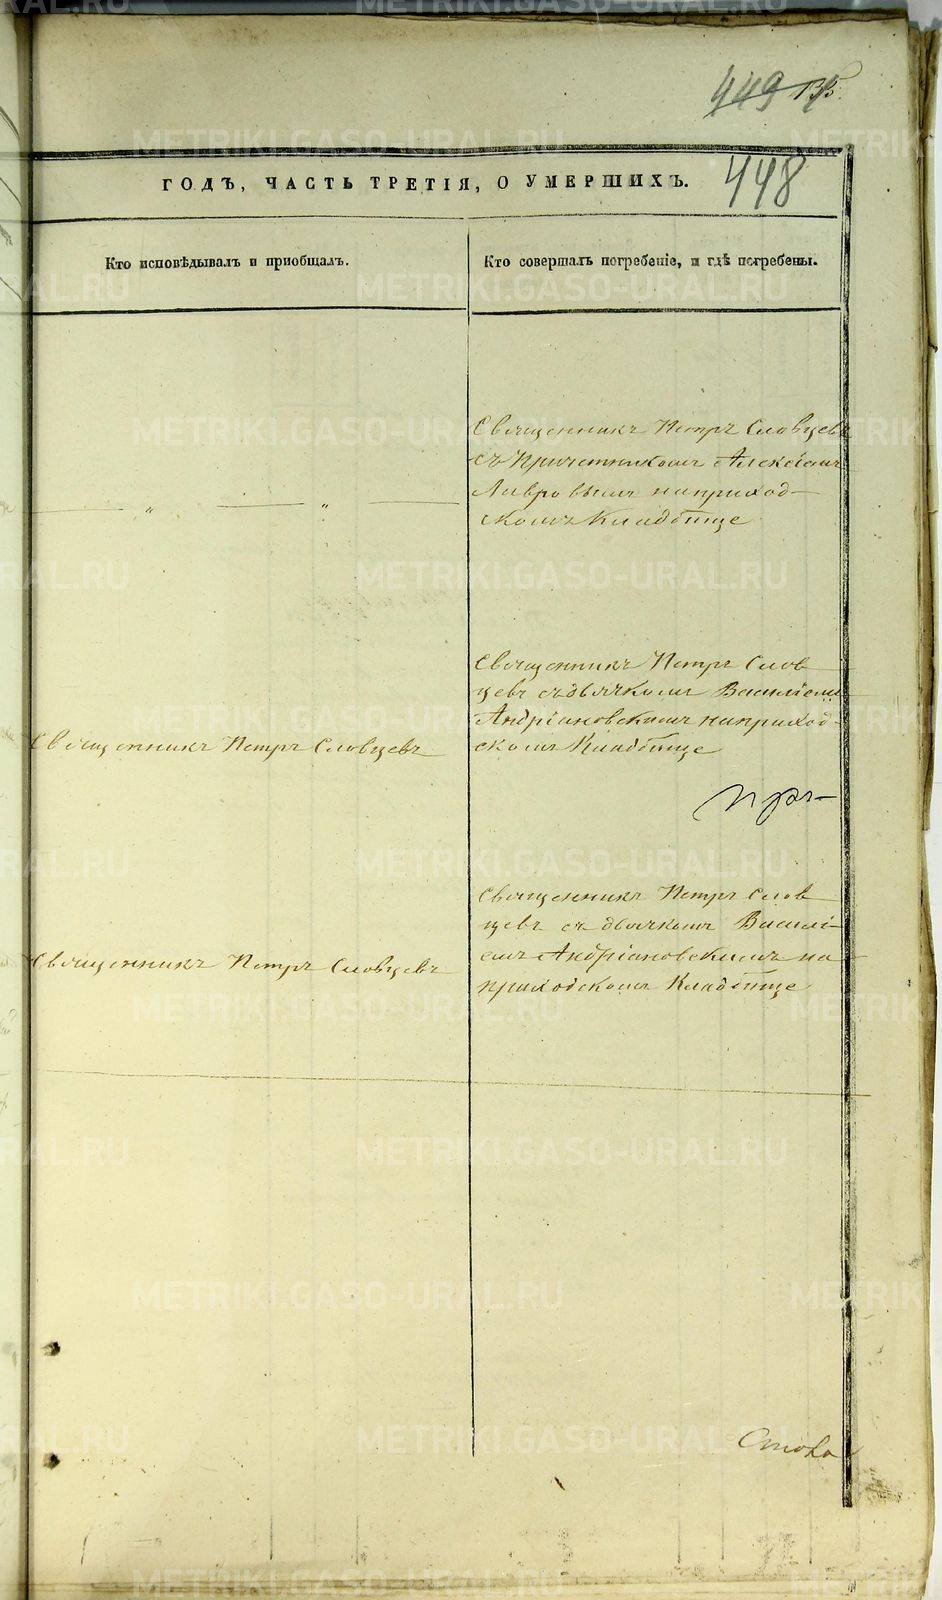 449
448
ГОДЪ, ЧАСТЬ ТРЕТІЯ, О УМЕРШИХЪ.
Кто исповѣдывалъ и пріобщалъ.
Кто совершалъ погребеніе, и гдѣ погребены.
Священникъ Петръ Словцевъ
съ Причетникомъ Алексіемъ
Лавровымъ на приход-
скомъ Кладбище
Священникъ Петръ Словцевъ
Священникъ Петръ Слов
цевъ съ дьячкомъ Василіемъ
Андріановскимъ на приход-
скомъ Кладбище
Священникъ Петръ Словцевъ
Священникъ Петръ Слов
цевъ съ дьячкомъ Василі-
емъ Андріановскимъ на
приходскомъ Кладбище
METRIKI.GASO-URAL.RU